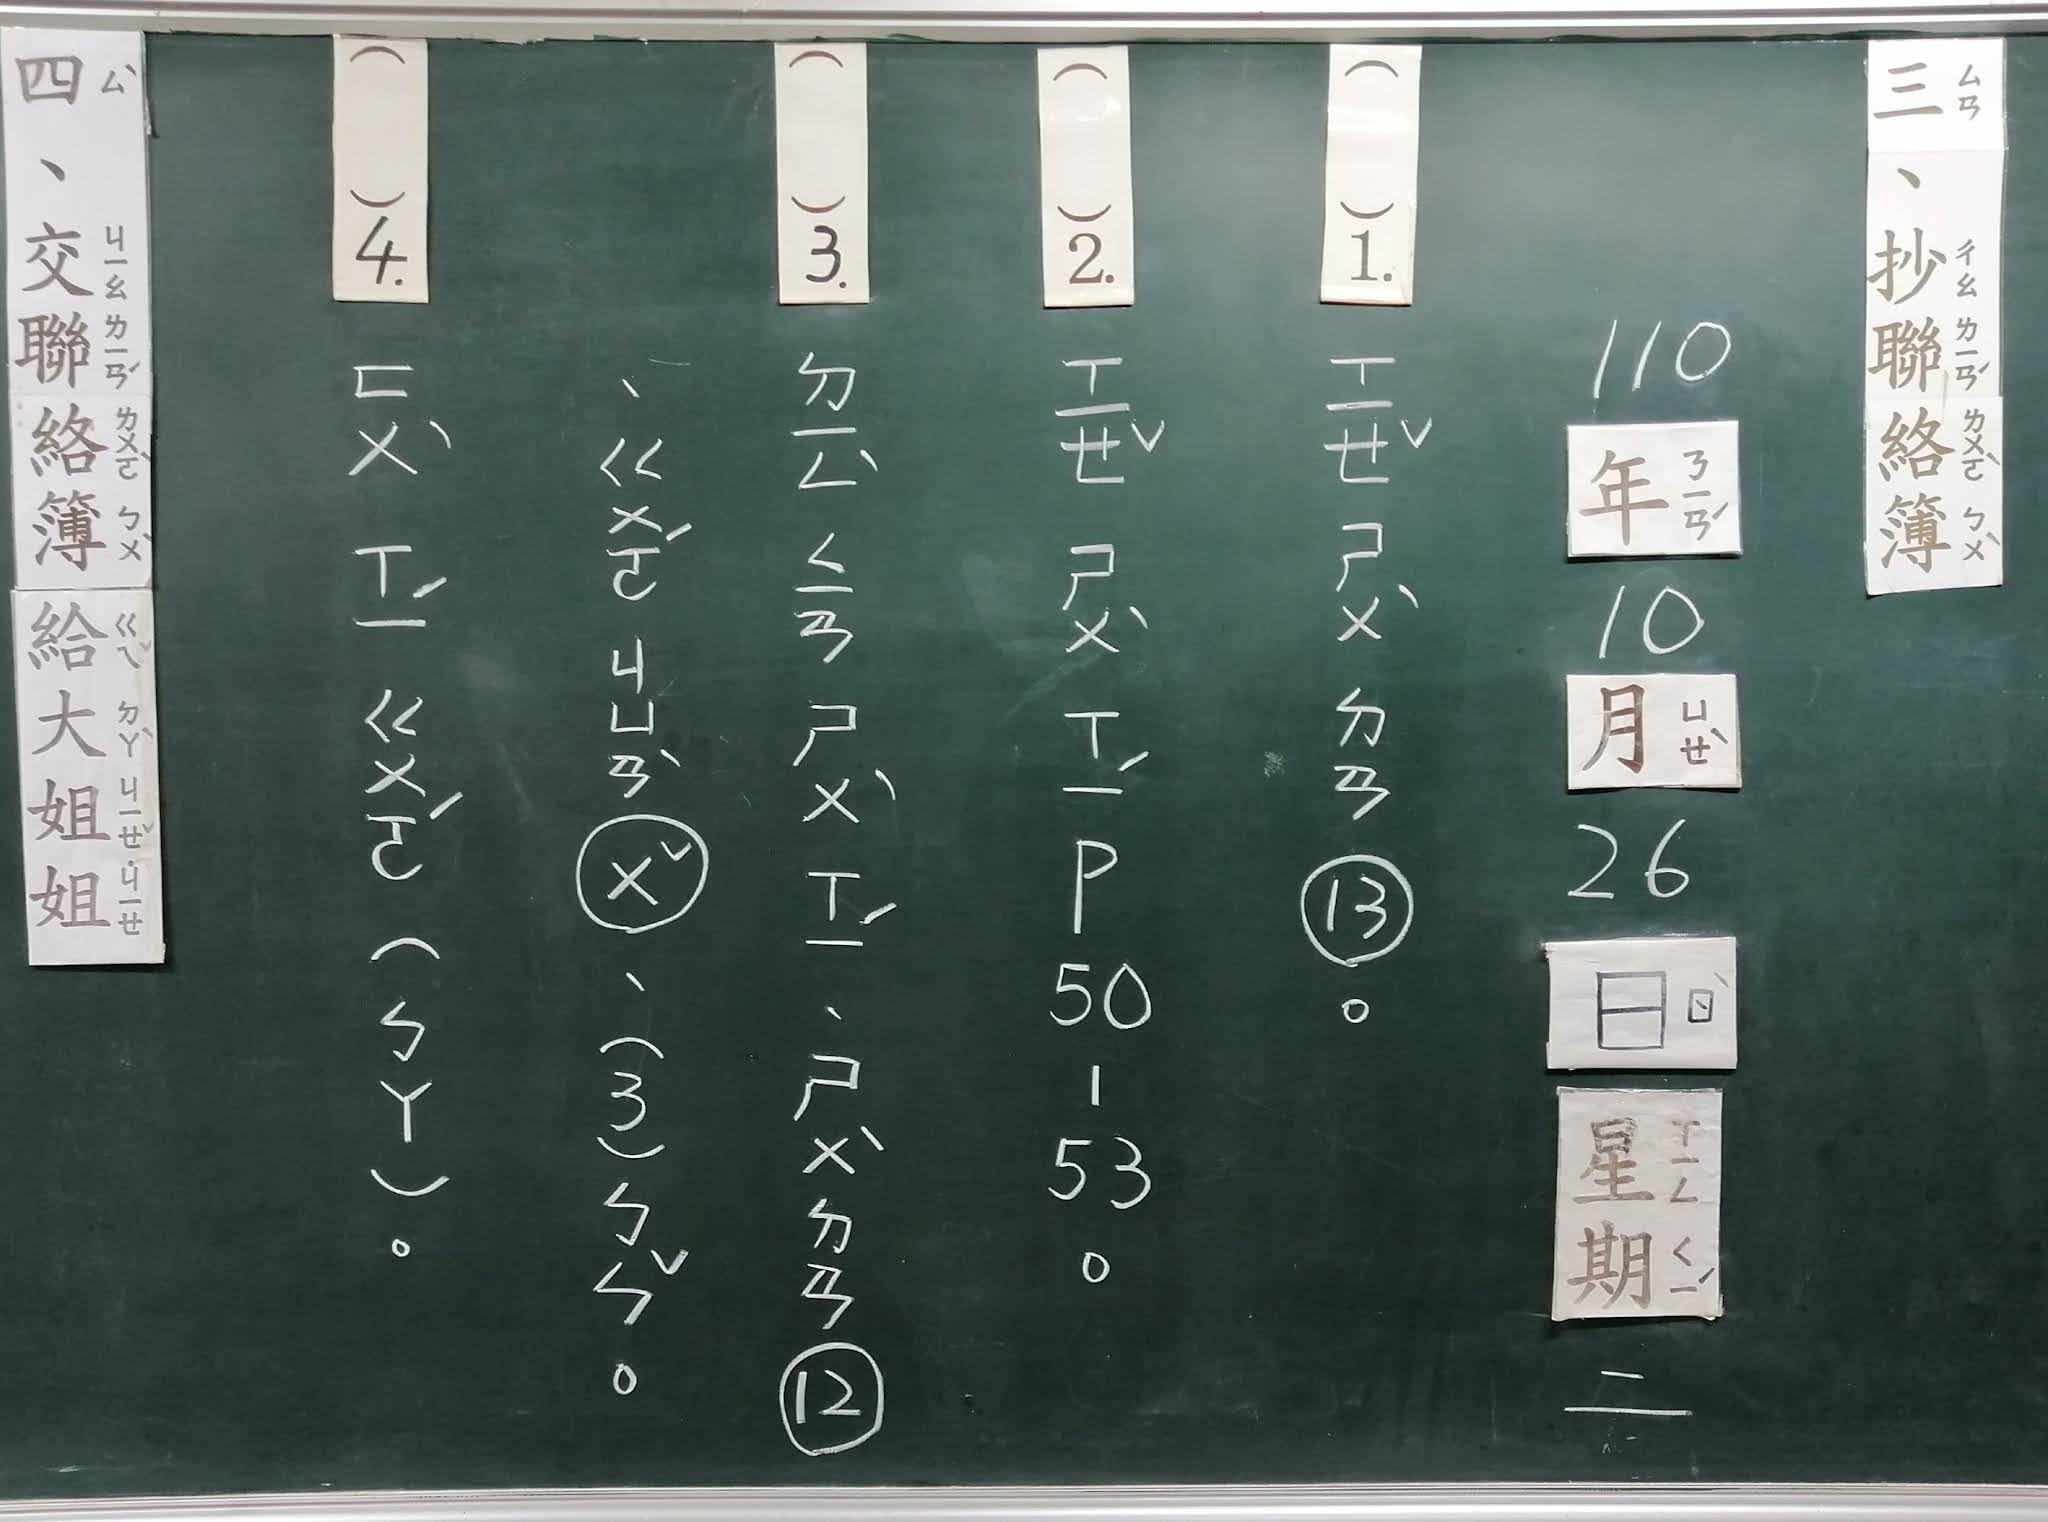 三、抄聯絡簿 ㄙㄢ ㄔㄠ ㄌㄧㄢˊ ㄌㄨㄛˋ ㄅㄨˋ
110年ㄋㄧㄢˊ10月ㄩㄝˋ26日ㄖˋ星期ㄒㄧㄥ ㄑㄧˊ二
( )1.ㄒㄧㄝˇ ㄕㄨˋ ㄉㄢ⑬。
( )2.ㄒㄧㄝˇ ㄕㄨˋ ㄒㄧˊ P50-53。
( )3.ㄉㄧㄥˋ ㄑㄧㄢ ㄕㄨˋ ㄒㄧˊ、ㄕㄨˋ ㄉㄢ⑫
、ㄍㄨㄛˊ ㄐㄩㄢˋ(ㄨˇ)、(3)ㄅㄣˇ。
( )4.ㄈㄨˋ ㄒㄧˊ ㄍㄨㄛˊ(ㄘㄚ)。
四、交聯絡簿給大姐姐 ㄙˋ ㄐㄧㄠ ㄌㄧㄢˊ ㄌㄨㄛˋ ㄅㄨˋ ㄍㄟˇ ㄉㄚˋ ㄐㄧㄝˇ ˙ㄐㄧㄝ